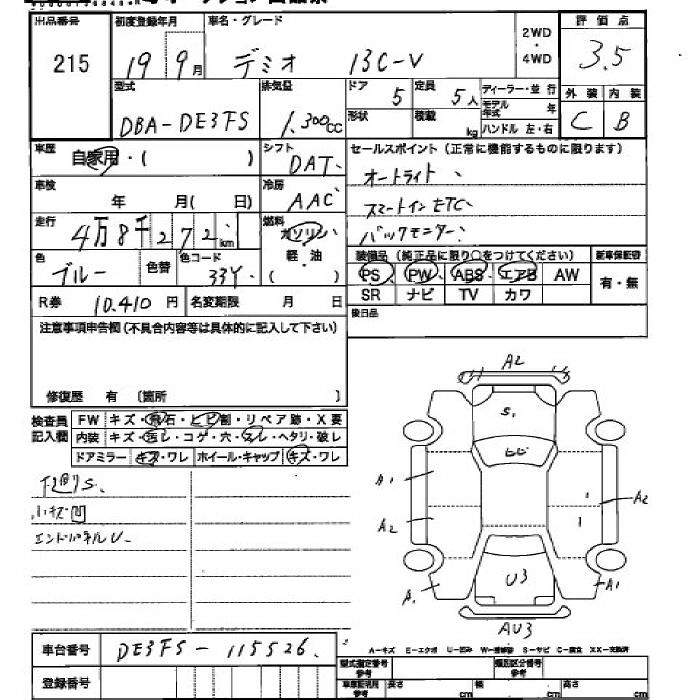 出品番号 初度登録年月 車名・グレード 2WD・4WD 評価点
215 19 9月 デミオ 13C-V 3.5
型式 排気量 ドア 定員 ディーラー・並行 外装 内装
DBA-DE3FS 1.300CC 5 5人 モデル年式 年 C B
形状 積載 kg ハンドル 左・右
車歴 自家用・( ) シフト DAT セールスポイント(正常に機能するものに限ります)
オートライト、
車検 年 月( 日) 冷房 AAC
スマートインETC、
走行 4万8千272km 燃料 ガソリン・軽・油 ( )
バックモニター、
色 ブルー 色替 色コード 33Y
装備品(純正品に限り○をつけてください) 新車保証書
PS PW ABS エアB AW 有・無
SR ナビ TV カワ
R券 10.410円 名変期限 月 日
後日品
注意事項申告欄(不具合内容等は具体的に記入して下さい)
修復歴 有 〔箇所 〕
検査員記入欄 FW キズ・飛石・ヒビ割・リペア跡・X要
内装 キズ・汚レ・コゲ・穴・スレ・ヘタリ・破レ
ドアミラー キズ・ワレ ホイール・キャップ キズ・ワレ
小キズ凹
エンドパネルU
A2
S1
ヒビ
A1
A2
A2
U3
A1
AU3
A-キズ E-エクボ U-凹み W-補修跡 S-サビ C-腐食 XX-交換済
車台番号 DE3FS-115526
登録番号
型式指定番号 参考 類別区分番号 参考
車庫証明用 参考 長さ cm 幅 cm 高さ cm